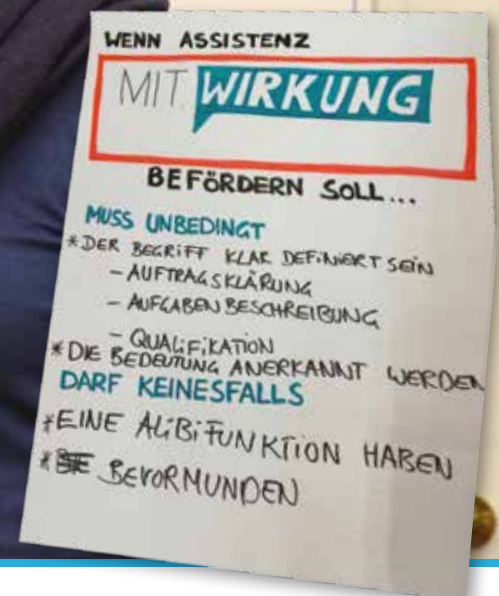 WENN ASSISTENZ
MIT WIRKUNG
BEFÖRDERN SOLL...
MUSS UNBEDINGT
* DER BEGRIFF KLAR DEFINIERT SEIN
- AUFTRAGSKLÄRUNG
- AUFGABENBESCHREIBUNG
- QUALIFIKATION
* DIE BEDEUTUNG ANERKANNT WERDEN
DARF KEINESFALLS
* EINE ALIBIFUNKTION HABEN
* BEVORMUNDEN